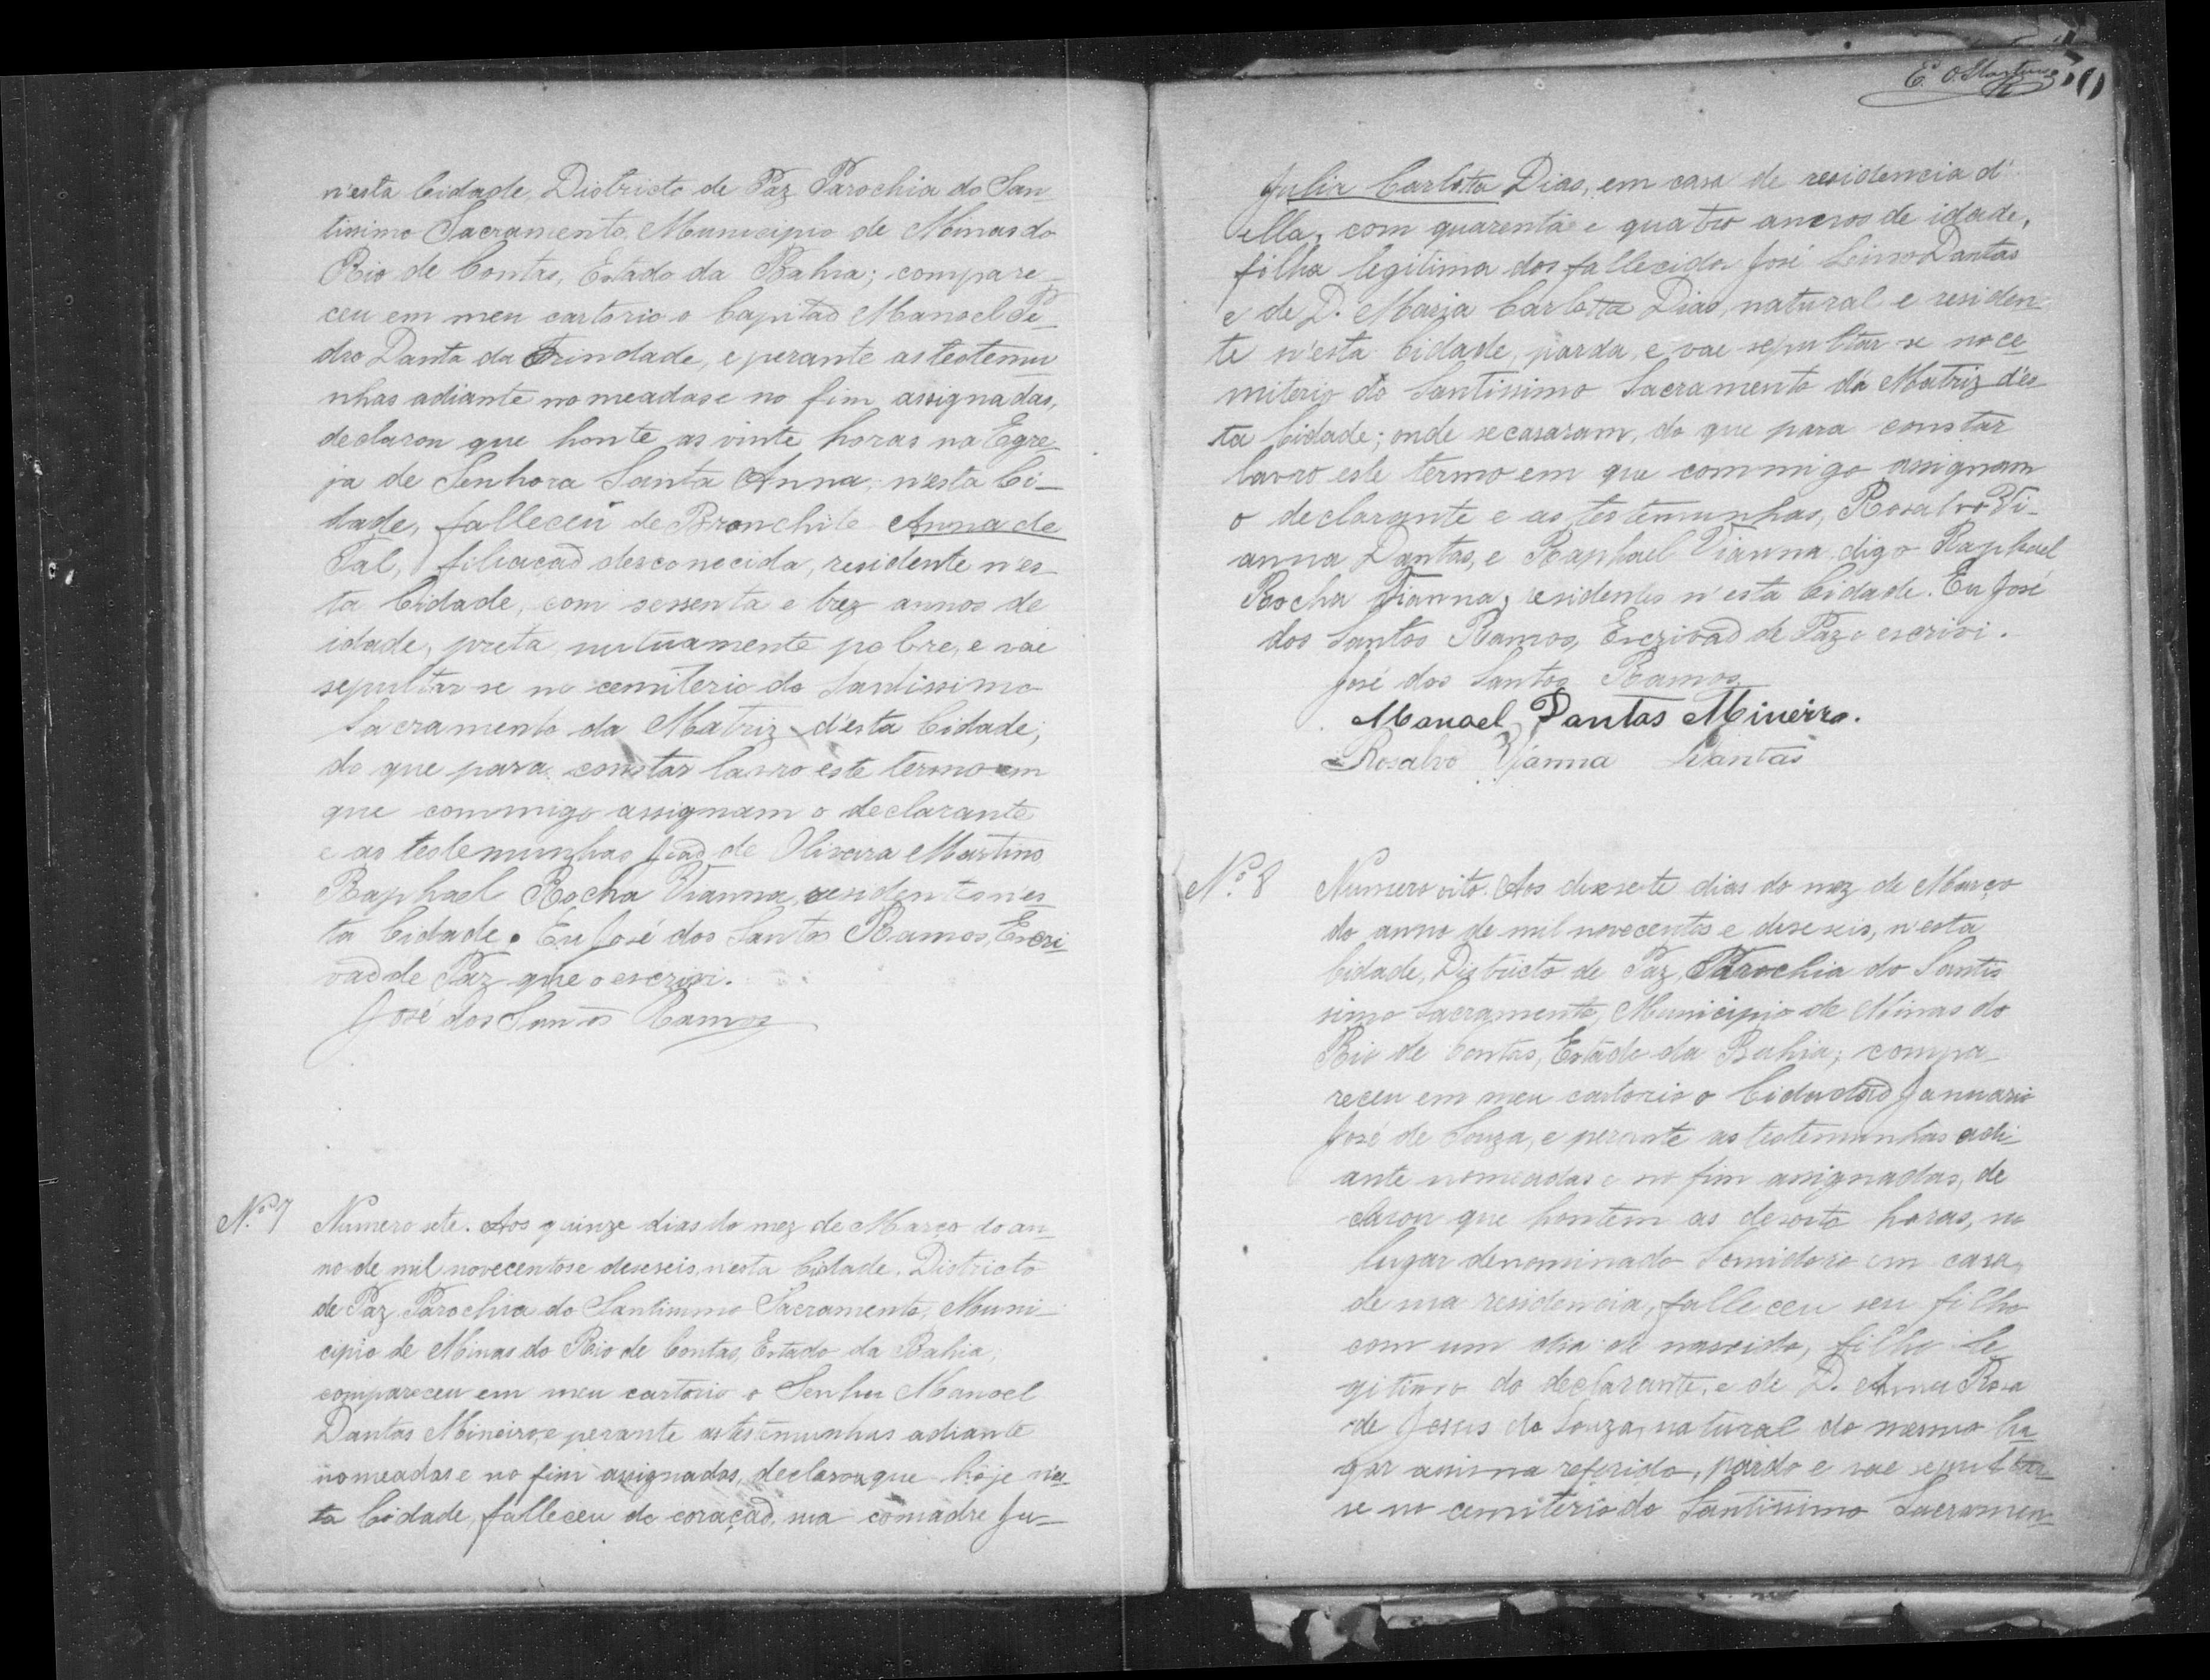 n'esta Cidade, Districto de Paz, Parochia do San
tissimo Sacramento, Municipio de Minas do
Rio de Contas, Estado da Bahia; compare
ceu em meu cartorio o Capitaõ Manoel Pe
dro Danta da Trindade, e perante as testemu
nhas adiante nomeadas e no fim assignadas,
declarou que honte as vinte horas na Egre
ja de Senhora Santa Anna, n'esta Ci-
dade, falleceu de Bronchite Anna de
Tal, filiacaõ desconecida, residente n'es
ta Cidade, com sessenta e trez annos de
idade, preta, pobre, e vae
sepultar-se no cemiterio do Santissimo
Sacramento da Matriz d'esta Cidade;
do que para constar lavro este termo em
que commigo assignam o declarante
e as testemunhas Joaõ de Oliveira Martins
Raphael Rocha Vianna, residentes n'es
ta Cidade. Eu José dos Santos Ramos, Escri
vaõ de Paz que o escrivi.
José dos Santos Ramos
Nº 7 Numero sete. Aos quinze dias do mez de Março do an
no de mil novecentos e deseseis, n'esta Cidade, Districto
de Paz, Parochia do Santissimo Sacramento, Muni-
cipio de Minas do Rio de Contas, Estado da Bahia;
compareceu em meu cartorio o Senhor Manoel
Dantas Mineiro, e perante as testemunhas adiante
nomeadas e no fim assignadas, declarou que hoje n'es
ta Cidade, falleceu do coraçaõ, sua comadre Ju-
E. O. Martins 50
Julia Carlotta Dias, em casa de residencia d'
ella, com quarenta e quatro annos de idade,
filha legitima dos fallecidos José Lino Dantas
e de D. Maria Carlotta Dias, natural e residen
te n'esta Cidade, parda, e vae sepultar-se no ce
miterio do Santissimo Sacramento da Matriz d'es
ta Cidade; onde se casaram, do que para constar
lavro este termo em que commigo assignam
o declarante e as testemunhas, Rosalvo Vi-
anna Dantas, e Raphael Vianna, digo Raphael
Rocha Vianna, residentes n'esta Cidade. Eu José
dos Santos Ramos, Escrivaõ de Paz o escrivi.
José dos Santos Ramos
Manoel Dantas Mineiro.
Rosalvo Vianna Dantas
Nº 8 Numero oito. Aos desesete dias do mez de Março
do anno de mil novecentos e deseseis, n'esta
Cidade, Districto de Paz, Parochia do Santis
simo Sacramento, Municipio de Minas do
Rio de Contas, Estado da Bahia; compa-
receu em meu cartorio o Cidadaõ Januario
José de Souza, e perante as testemunhas adi-
ante nomeadas e no fim assignadas, de
clarou que hontem as desoito horas, no
lugar denominado Somidoro em casa,
de sua residencia, falleceu seu filho
com um dia de nascido, filho le
gitimo do declarante, e de D. Anna Rosa
de Jesus de Souza, natural do mesmo lu
gar acima referido, pardo e vae sepultar-
se no cemiterio do Santissimo Sacramen